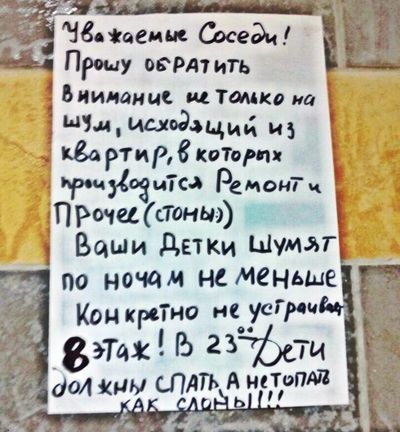 Уважаемые Соседи!
Прошу ОБРАТИТЬ
Внимание не только на
шум, исходящий из
квартир, в которых
производится Ремонт и
Прочее (стоны:))
Ваши Детки Шумят
по ночам не меньше
Конкретно не устраивает
8 этаж! В 23⁰⁰ Дети
должны СПАТЬ, А не топать
КАК СЛОНЫ!!!!